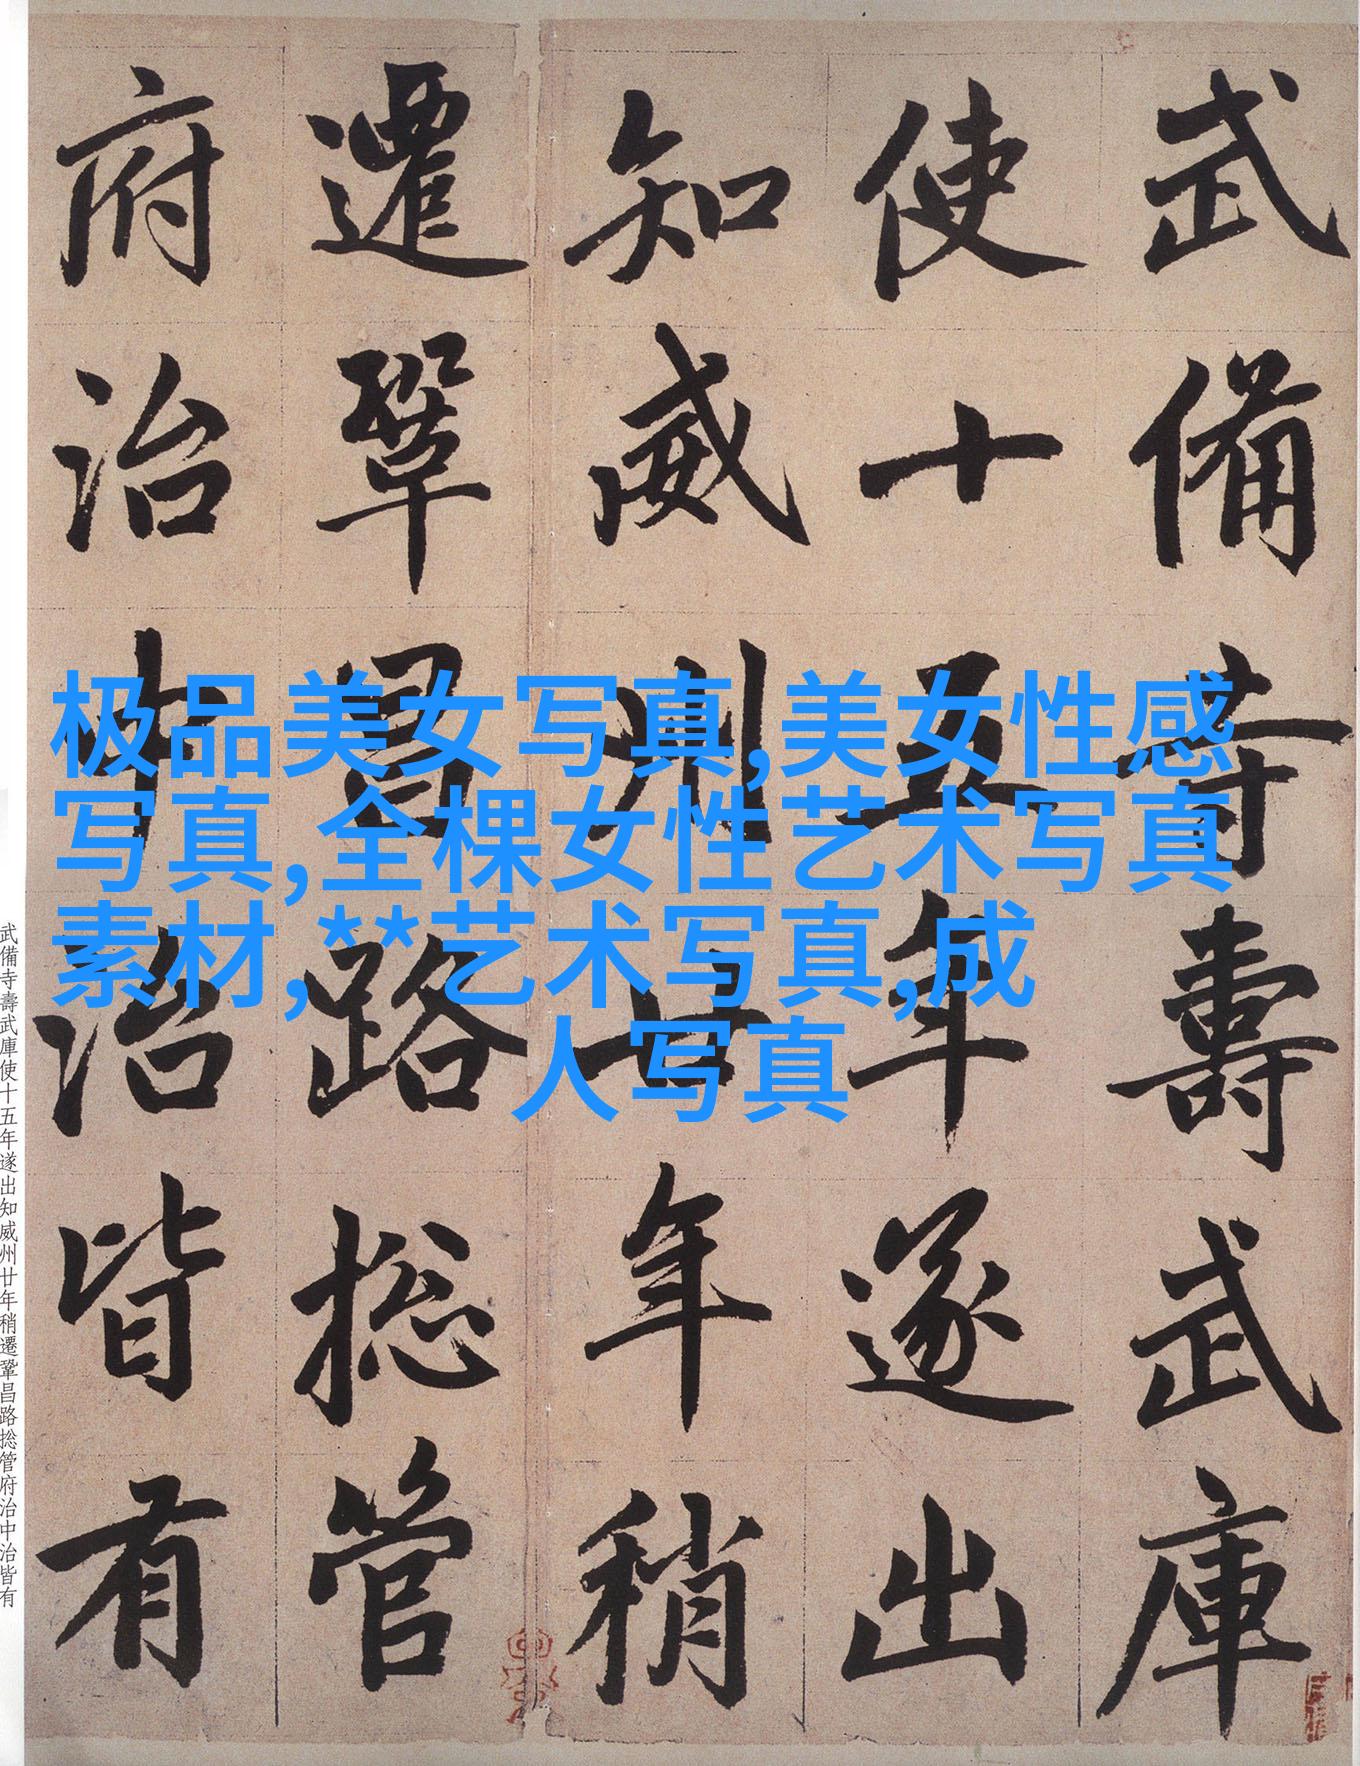 武備寺壽武庫
使十五年遂出
知威州廿年稍
遷鞏昌路捴管
府治中治皆有
极品美女写真,美女性感
写真,全棵女性艺术写真
素材,**艺术写真,成
人写真
武備寺壽武庫使十五年遂出知威州廿年稍遷鞏昌路捴管府治中治皆有